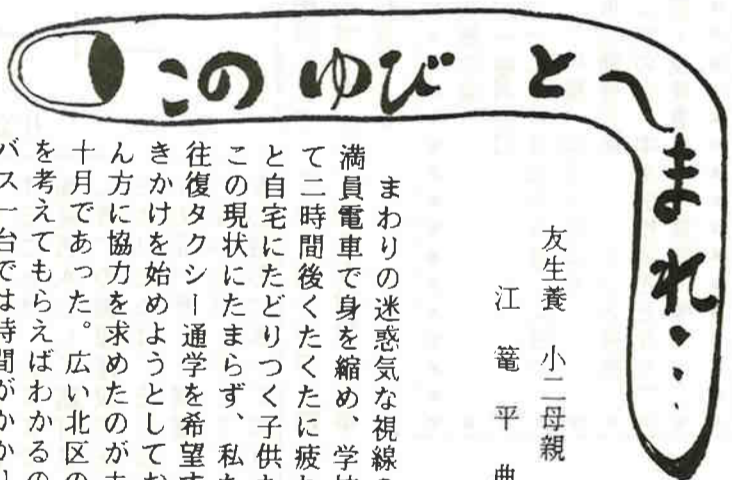 このゆびと〜まれ・・・
友生養 小二母親
江篭平
まわりの迷惑気な視線
満員電車で身を縮め、学
て二時間後くたくたに疲
と自宅にたどりつく子供
この現状にたまらず、私
往復タクシー通学を希望
きかけを始めようとして
ん方に協力を求めたのが
十月であった。広い北区の
を考えてもらえばわかるの
バス一台では時間がかか